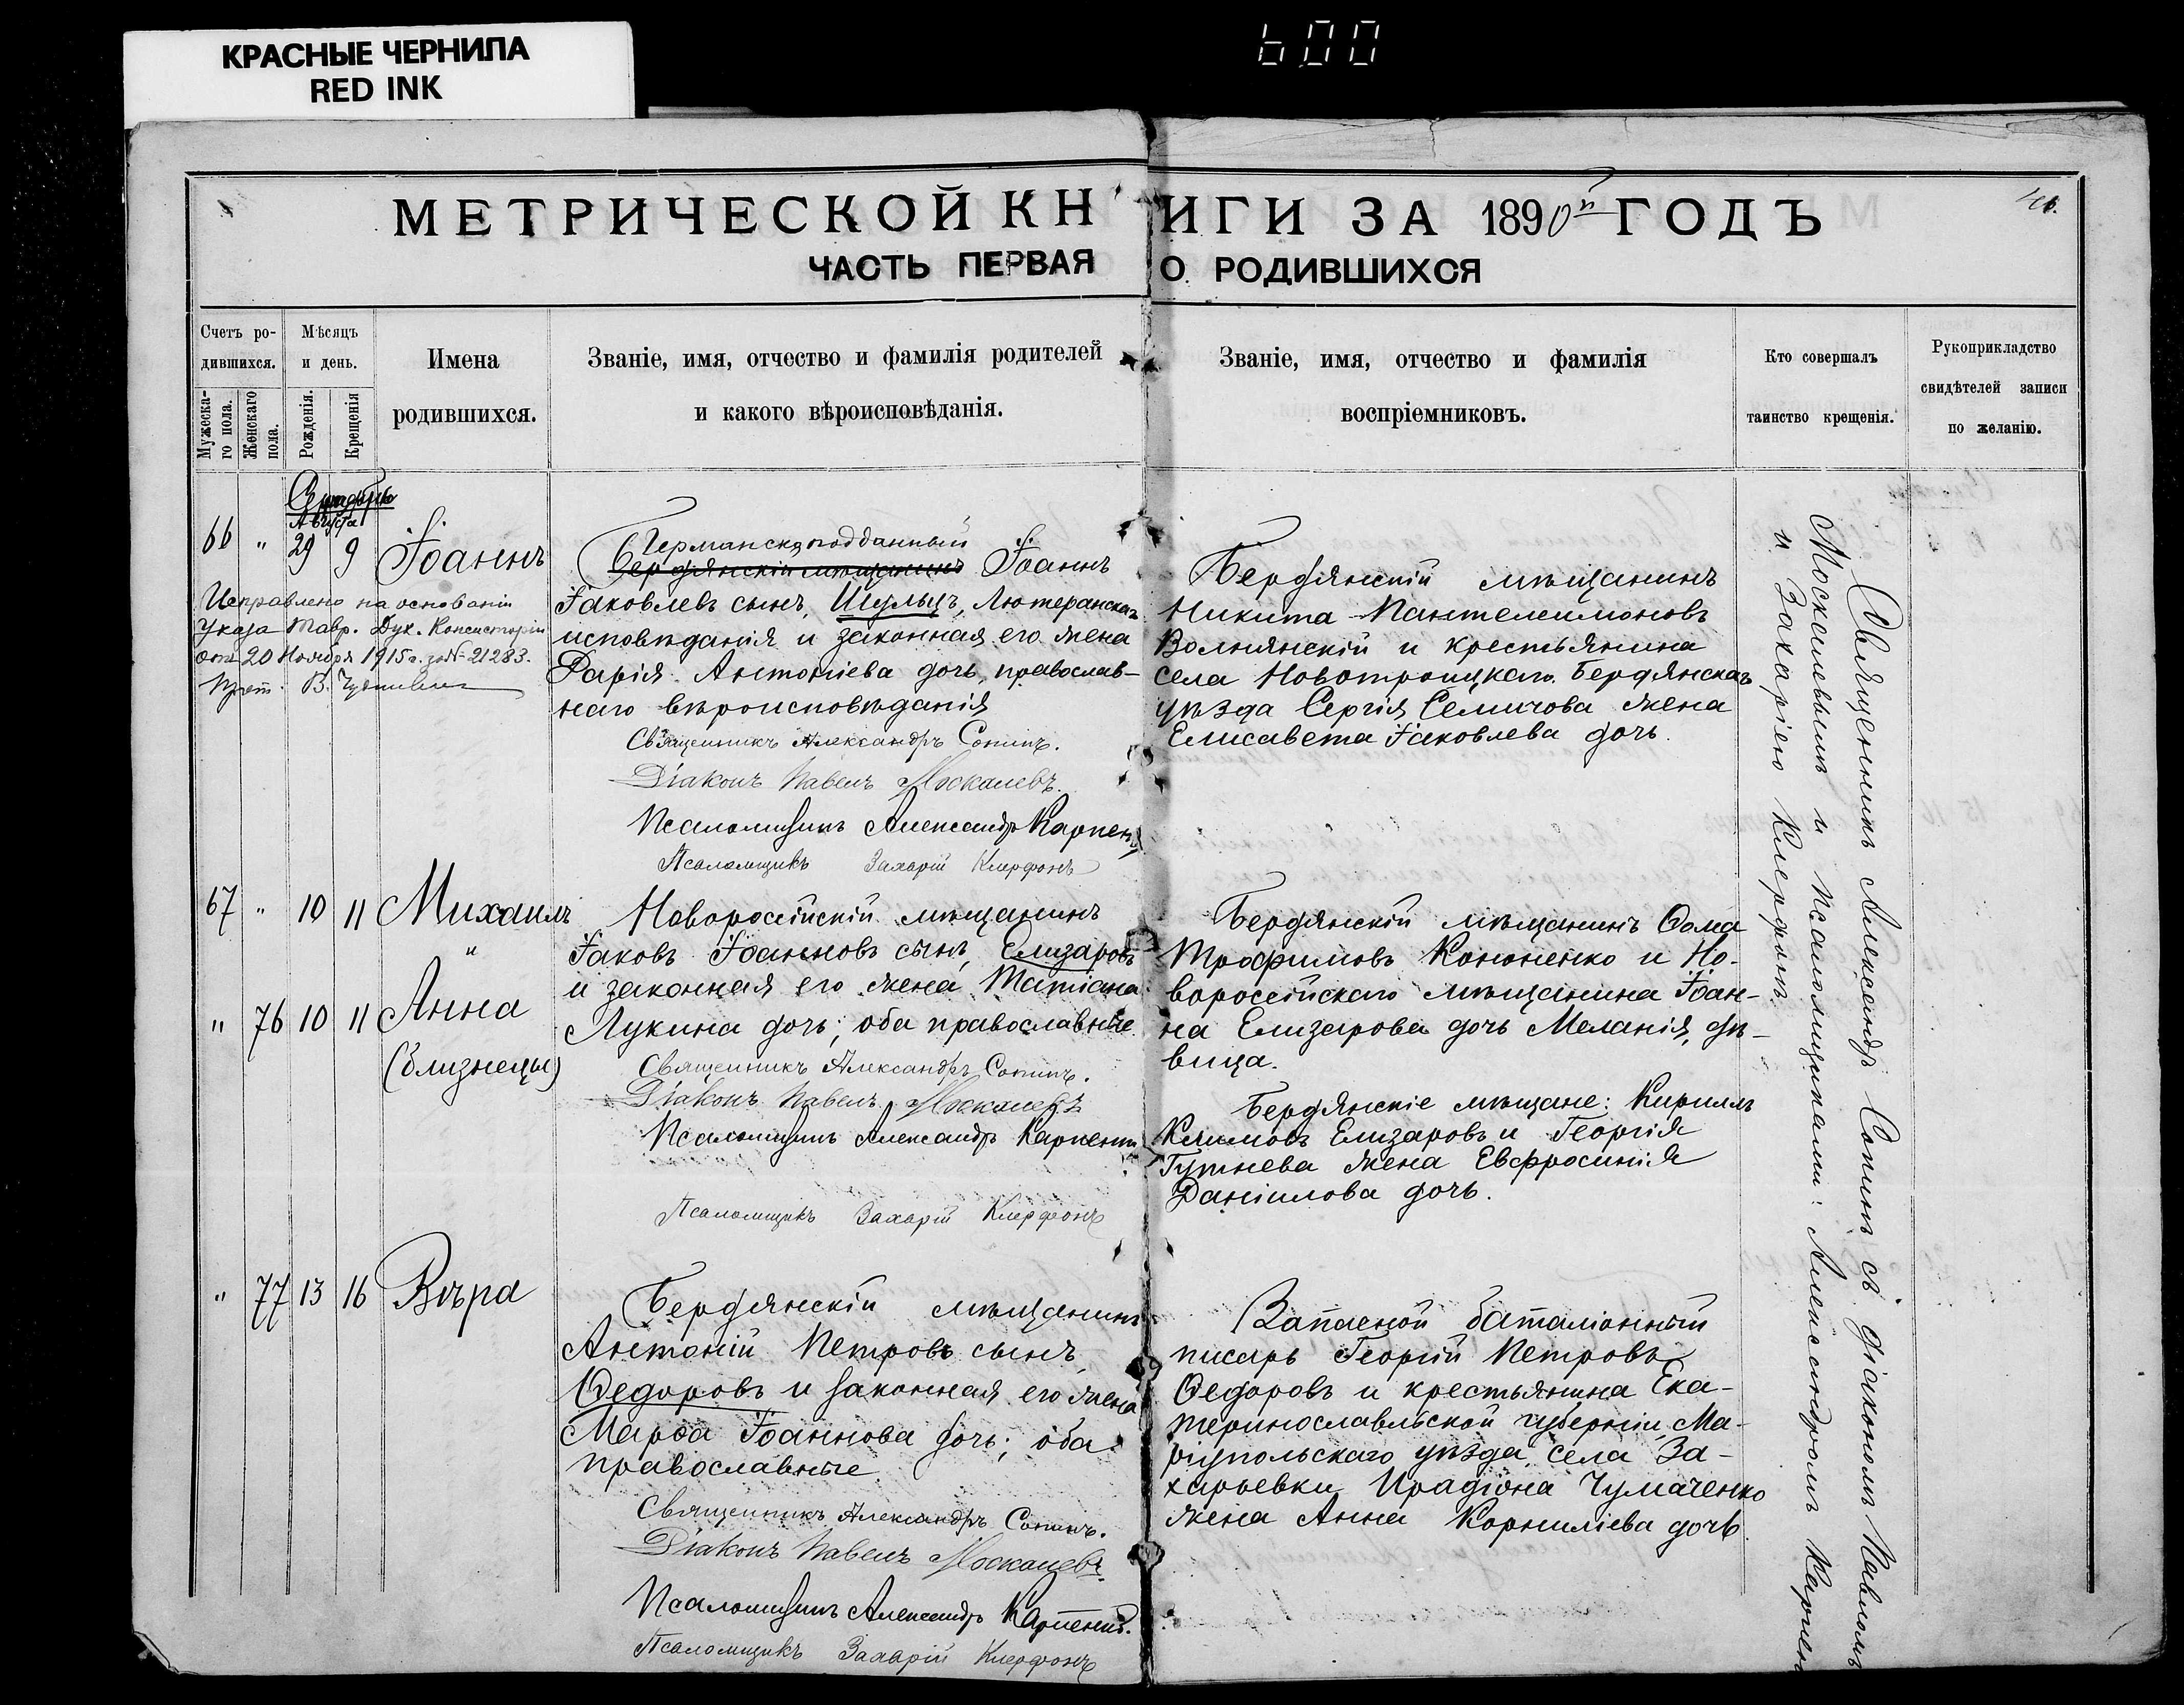 КРАСНЫЕ ЧЕРНИЛА
RED INK
600
МЕТРИЧЕСКОЙ КНИГИ ЗА 1890й ГОДЪ
46.
ЧАСТЬ ПЕРВАЯ О РОДИВШИХСЯ
Счетъ ро-
дившихся.
Мужеска-
го пола.
Женскаго
пола.
Мѣсяцъ
и день.
Рожденія.
Крещенія
Имена
родившихся.
Званіе, имя, отчество и фамилія родителей
и какого вѣроисповѣданія.
Званіе, имя, отчество и фамилія
воспріемниковъ.
Кто совершалъ
таинство крещенія.
Рукоприкладство
свидѣтелей записи
по желанію.
Августа
66 " 29 9 Іоаннъ
Исправлено на основаніи
Указа Тавр. Дух. Консисторіи
отъ 20 Ноября 1915 г. за № 21283.
Германско подданный
Бердянскій мѣщанинъ Іоаннъ
Іаковлевъ сынъ, Шульцъ, Лютеранскаго
исповѣданія и законная его жена
Дарія Антоніева дочь, православ-
наго вѣроисповѣданія
Священникъ Александръ Сопинъ.
Діаконъ Павелъ Москалевъ.
Псаломщикъ Александръ Карпенко
Псаломщикъ Захарій Клерфонъ
Бердянскій мѣщанинъ
Никита Пантелеимоновъ
Волнянскій и крестьянина
села Новотроицкаго Бердянскаго
уѣзда Сергія Семичова жена
Елисавета Іаковлева дочь.
67 " 10 11 Михаилъ
и
" 76 10 11 Анна
(близнецы)
Новороссійскій мѣщанинъ
Іаковъ Іоанновъ сынъ, Елизаровъ
и законная его жена Татіана
Лукина дочь; оба православные
Священникъ Александръ Сопинъ.
Діаконъ Павелъ Москалевъ
Псаломщикъ Александръ Карпенко
Псаломщикъ Захарій Клерфонъ
Бердянскій мѣщанинъ Ѳома
Трофимовъ Кононенко и Но-
вороссійскаго мѣщанина Іоан-
на Елизарова дочь Меланія, дѣ-
вица.
Бердянскіе мѣщане: Кириллъ
Климовъ Елизаровъ и Георгія
Гутнева жена Евфросинія
Даніилова дочь.
" 77 13 16 Вѣра
Бердянскій мѣщанинъ
Антоній Петровъ сынъ
Ѳедоровъ и законная его жена
Марѳа Іоаннова дочь; оба
православные.
Священникъ Александръ Сопинъ.
Діаконъ Павелъ Москалевъ.
Псаломщикъ Александръ Карпенко.
Псаломщикъ Захарій Клерфонъ
Запасной баталіонный
писарь Георгій Петровъ
Ѳедоровъ и крестьянина Ека-
теринославльской губерніи, Ма-
ріупольскаго уѣзда, села За-
харьевки Ирадіона Чумаченко
жена Анна Корниліева дочь.
Священникъ Александръ Сопинъ съ діакономъ Павломъ
Москалевымъ и Псаломщиками: Александромъ Карпенко
и Захаріею Клерфонъ.